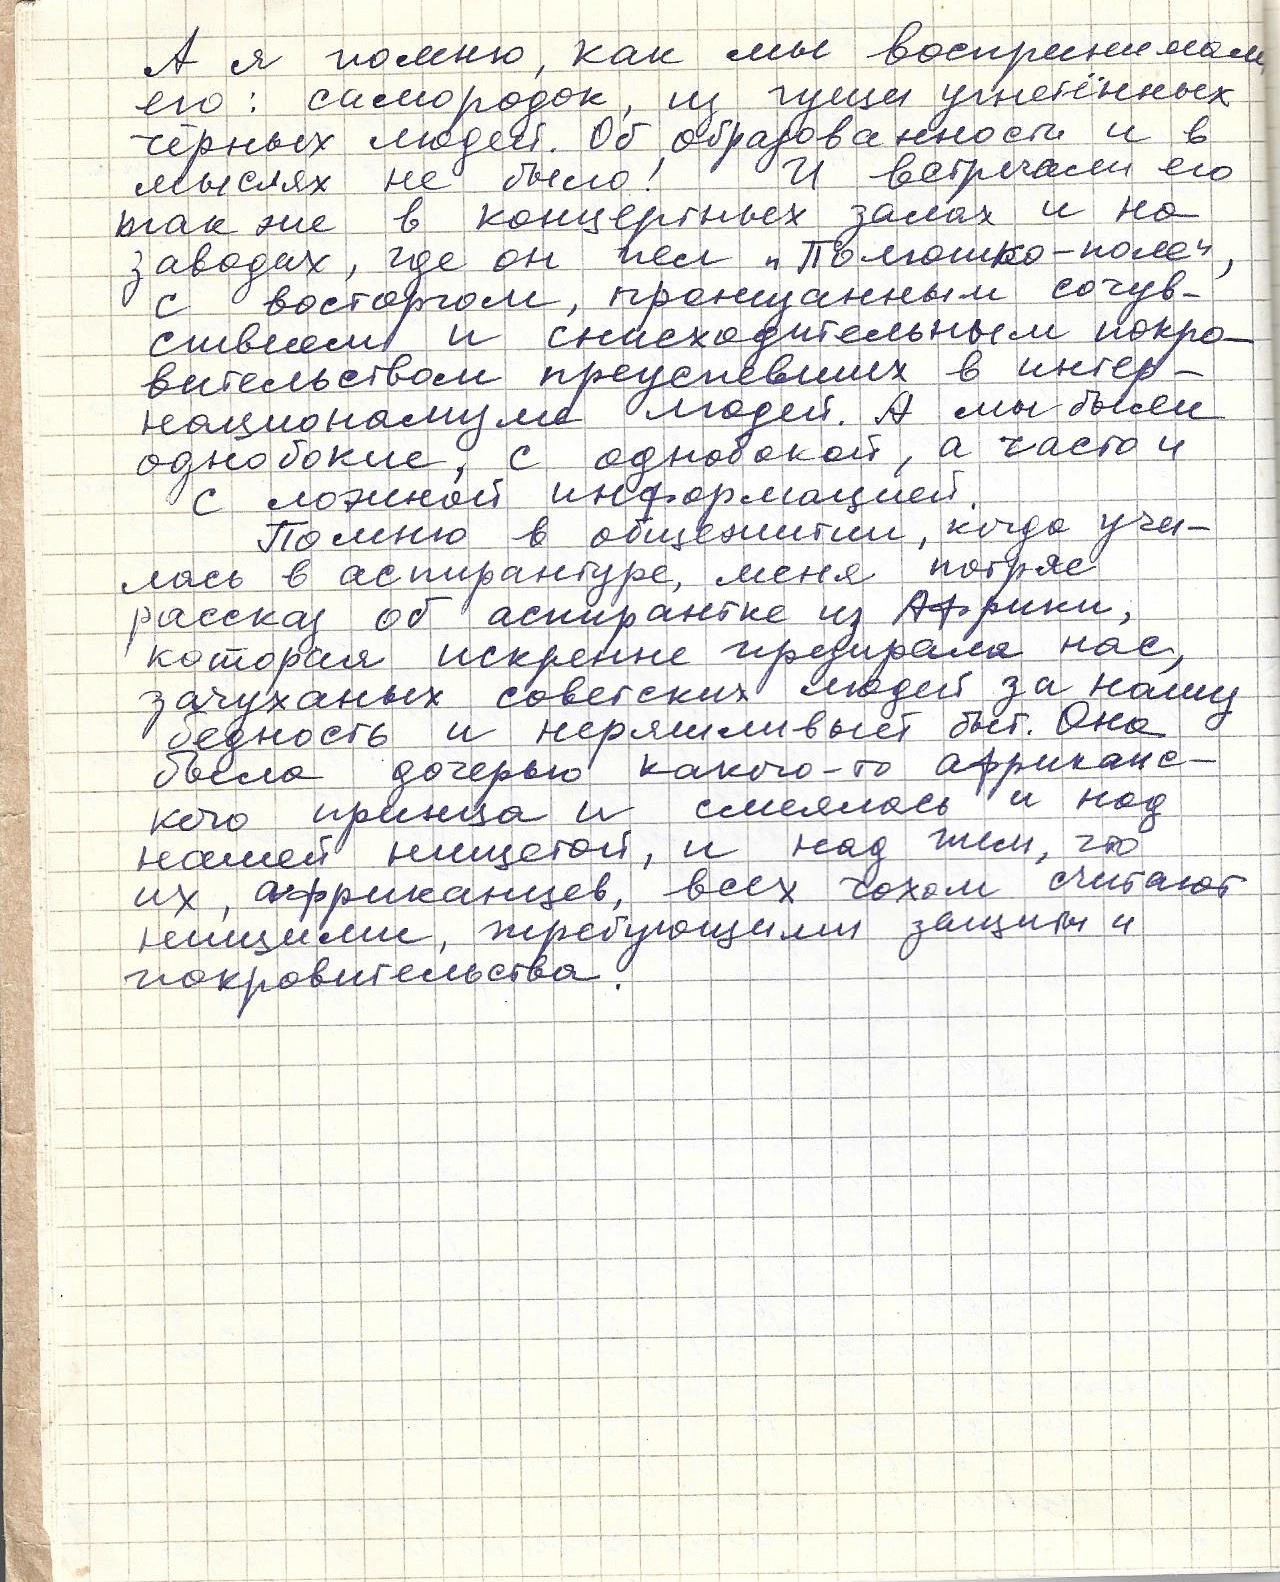 А я помню, как мы воспринимали
его: самородок, из гущи угнетённых
чёрных людей. Об образованности и в
мыслях не было! И встречали его
так же в концертных залах и на
заводах, где он пел „Полюшко-поле",
с восторгом, пронизанным сочув-
ствием и снисходительным покро-
вительством преуспевших в интер-
национализме людей. А мы были
однобокие, с однобокой, а часто и
с ложной информацией.
Помню в общежитии, когда учи-
лась в аспирантуре, меня потряс
рассказ об аспирантке из Африки,
которая искренне презирала нас,
зачуханых советских людей за нашу
бедность и неряшливый быт. Она
была дочерью какого-то африканс-
кого принца и смеялась и над
нашей нищетой, и над тем, что
их, африканцев, всех чохом считают
нищими, требующими защиты и
покровительства.